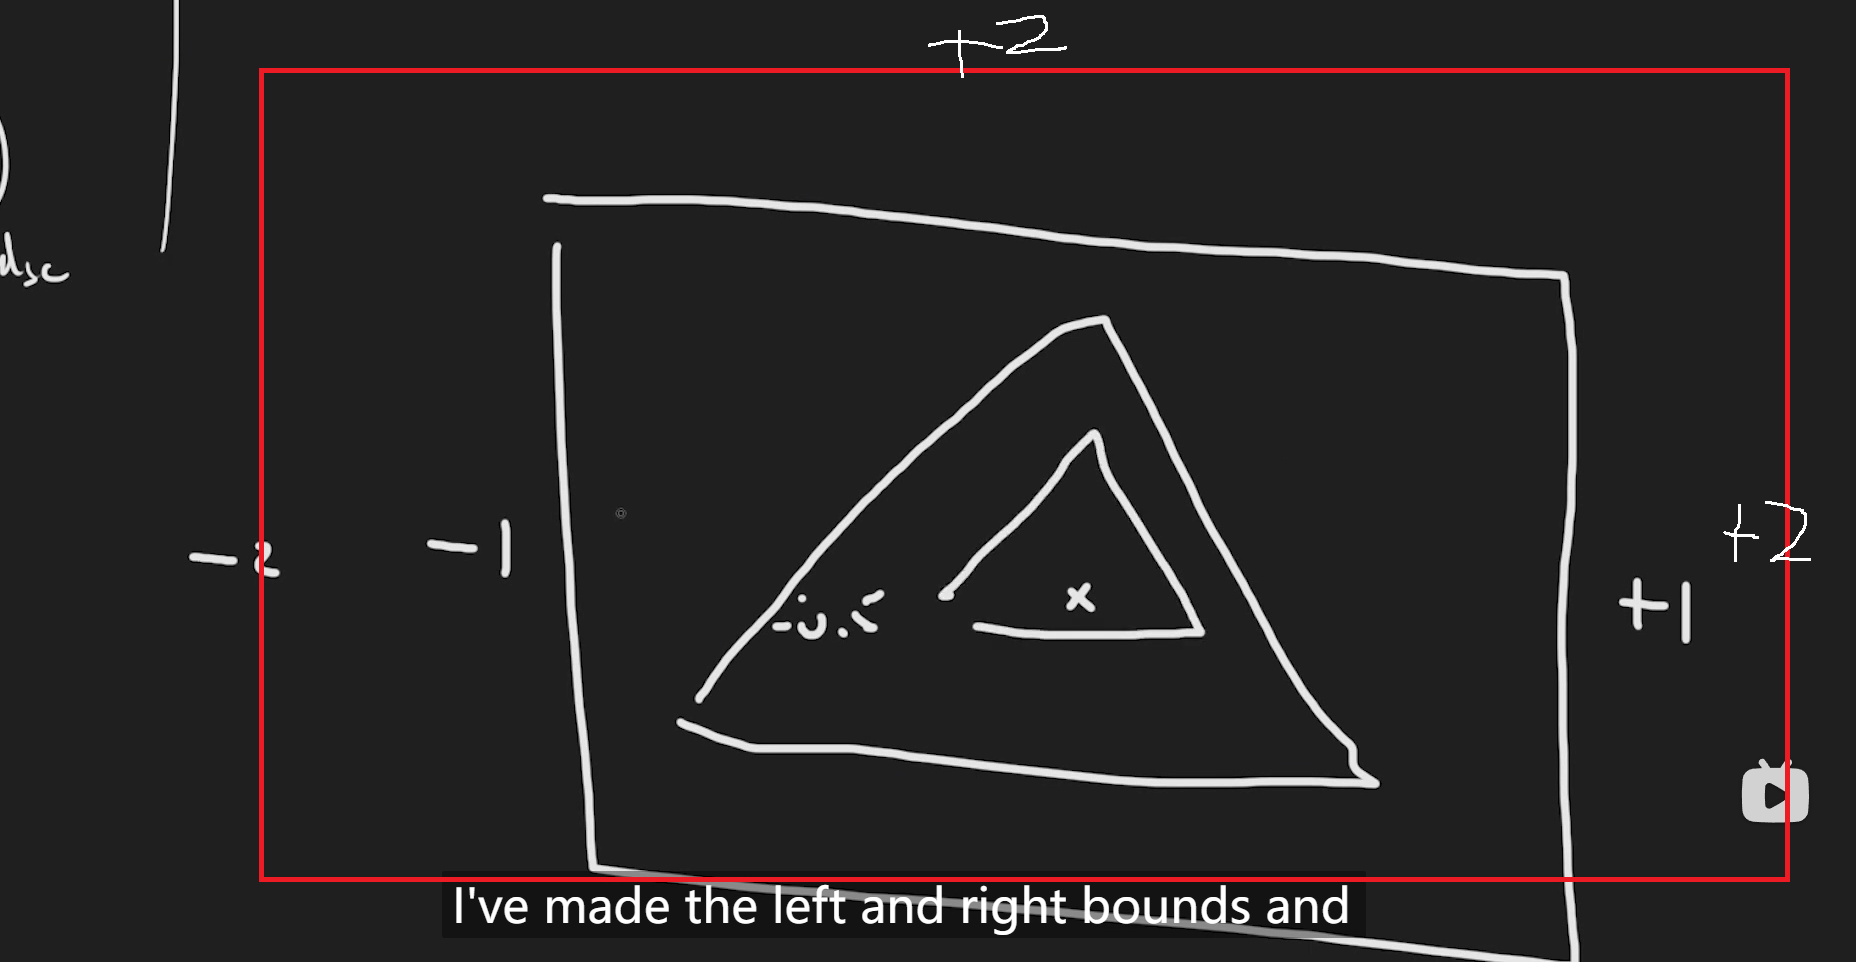 +2
dsc
-2
-1
+2
-0.5
x
+1
I've made the left and right bounds and